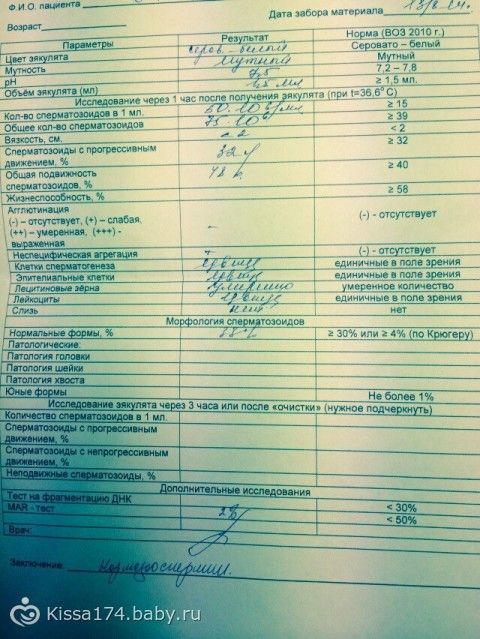 Ф.И.О. пациента
Дата забора материала
Возраст
Параметры Результат Норма (ВОЗ 2010 г.)
Цвет эякулята серов.-белый Серовато – белый
Мутность мутный Мутный
pH 7,5 7,2 – 7,8
Объём эякулята (мл) мл ≥ 1,5 мл.
Исследование через 1 час после получения эякулята (при t=36,6° С)
Кол-во сперматозоидов в 1 мл. ≥ 15
Общее кол-во сперматозоидов ≥ 39
Вязкость, см. < 2 < 2
Сперматозоиды с прогрессивным движением, % 32 ≥ 32
Общая подвижность сперматозоидов, % 48 ≥ 40
Жизнеспособность, % ≥ 58
Агглютинация
(-) – отсутствует, (+) – слабая, - (-) - отсутствует
(++) – умеренная, (+++) -
выраженная
Неспецифическая агрегация (-) - отсутствует
Клетки сперматогенеза единичные в поле зрения
Эпителиальные клетки единичные в поле зрения
Лецитиновые зёрна умеренно умеренное количество
Лейкоциты единичные в поле зрения
Слизь нет нет
Морфология сперматозоидов
Нормальные формы, % ≥ 30% или ≥ 4% (по Крюгеру)
Патологические:
Патология головки
Патология шейки
Патология хвоста
Юные формы Не более 1%
Исследование эякулята через 3 часа или после «очистки» (нужное подчеркнуть)
Количество сперматозоидов в 1 мл.
Сперматозоиды с прогрессивным
движением, %
Сперматозоиды с непрогрессивным
движением, %
Неподвижные сперматозоиды, %
Дополнительные исследования
Тест на фрагментацию ДНК < 30%
MAR - тест < 50%
Врач:
Заключение: Нормозооспермия.
Kissa174.baby.ru